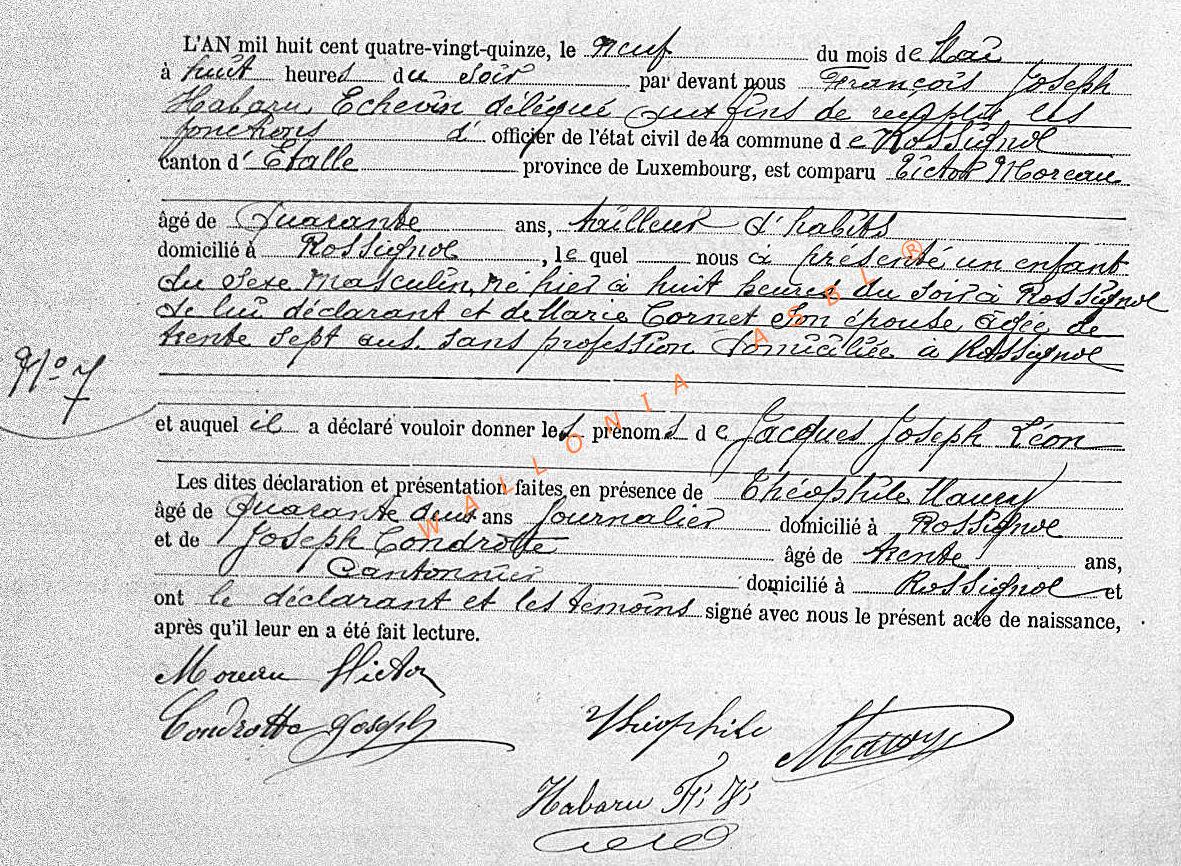 L'AN mil huit cent quatre-vingt-quinze, le neuf du mois de Mai
à huit heures du soir par devant nous François Joseph
Habaru, Echevin délégué aux fins de remplir les
fonctions d' officier de l'état civil de la commune de Rossignol
canton d' Etalle province de Luxembourg, est comparu Victor Moreau
âgé de Quarante ans, tailleur d'habits
domicilié à Rossignol, le quel nous a présenté un enfant
du sexe masculin, né hier à huit heures du soir à Rossignol
de lui déclarant et de Marie Cornet son épouse, âgée de
trente sept ans. sans profession domiciliée à Rossignol
N° 7
et auquel il a déclaré vouloir donner les prénoms de Jacques Joseph Léon
Les dites déclaration et présentation faites en présence de Théophile Maury
âgé de Quarante deux ans Journalier domicilié à Rossignol
et de Joseph Condrotte âgé de trente ans,
Cantonnier domicilié à Rossignol et
ont le déclarant et les témoins signé avec nous le présent acte de naissance,
après qu'il leur en a été fait lecture.
Moreau Victor
Condrotte Joseph Théophile
Habaru F. J.
WALLONIA ASBL ®